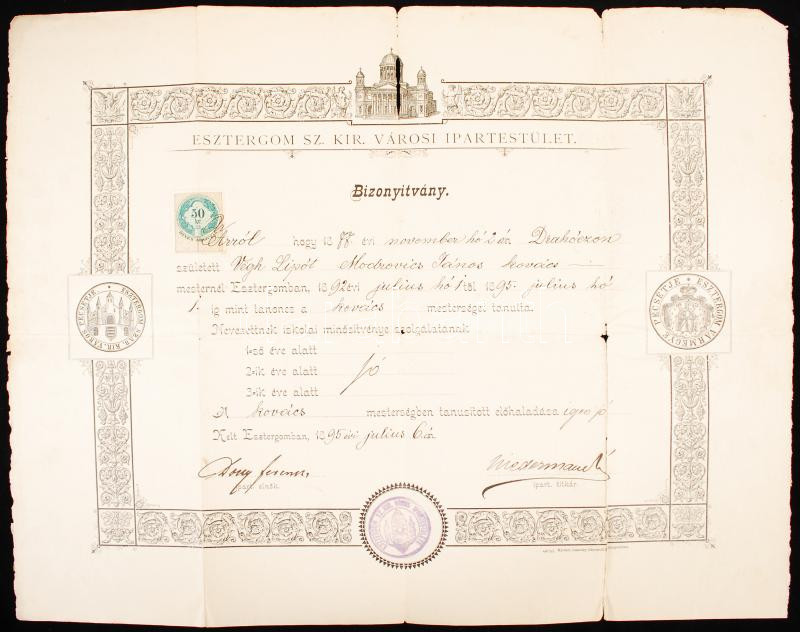 ESZTERGOM SZ. KIR. VÁROSI IPARTESTÜLET.
Bizonyítvány.
50
Arról hogy 1877 évi november hó 2 án
született Végh Lipót Modrovics János kovács
mesternél Esztergomban, 1892 évi július hó 1 től 1895. július hó
1. ig mint tanoncz a kovács mesterségei tanulta.
Nevezettnek iskolai minősítvénye szolgálatának
1-ső éve alatt
2-ik éve alatt jó
3-ik éve alatt
A kovács mesterségben tanusított előhaladása igen jó
Kelt Esztergomban, 1895 évi július 6 án.
ipart. elnök.
ipart. titkár.
ESZTERGOM SZAB. KIR. VÁROS PECSÉTJE
ESZTERGOM VÁRMEGYE PECSÉTJE